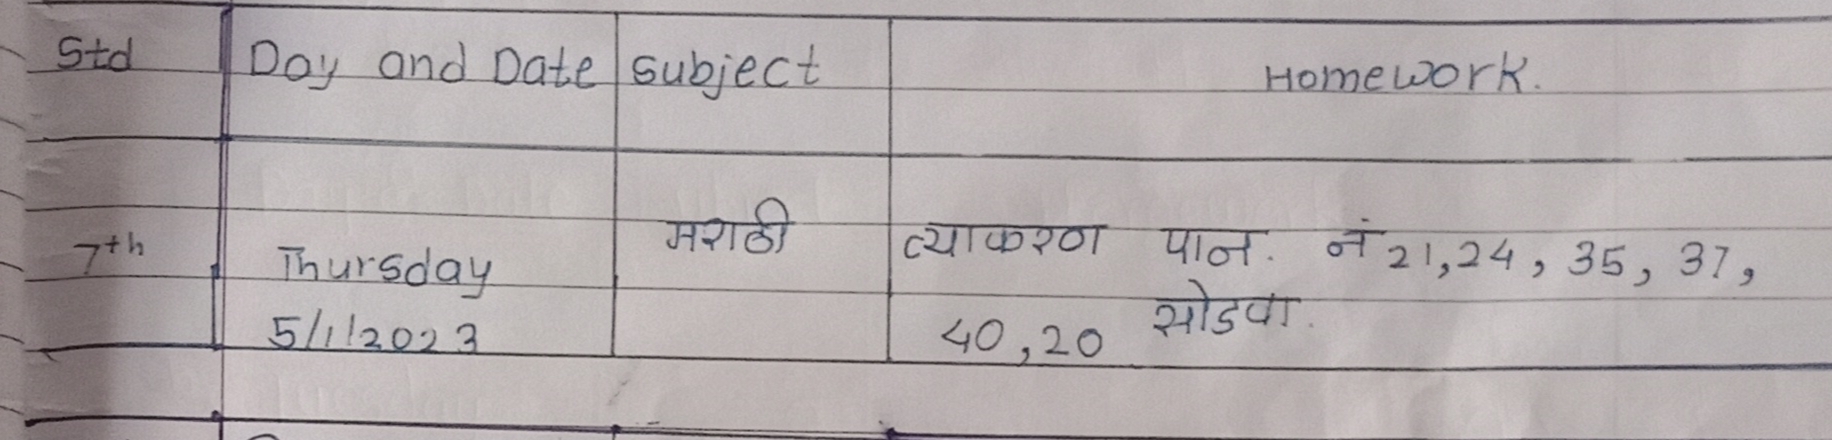 Std Day and Date subject Homework.
7th Thursday मराठी व्याकरण पान. नं 21,24, 35, 37,
5/1/2023 40,20 सोडवा.